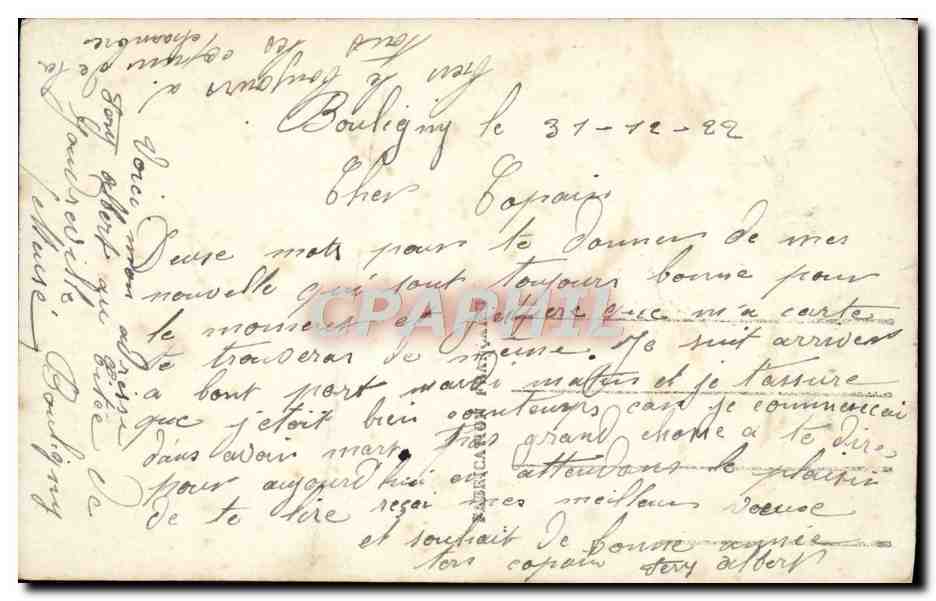 Bouligny le 31-12-22
Cher Copain
Deuse mots pour te donner de mes
nouvelle qui sont toujours bonne pour
le moment et j'espere que m'a carte
te trouveras de même. Je suit arriver
a bont port mardi matin et je t'assure
que j'etoit bien contents car je commencai
d'ans avoir marre pas grand chose a te dire
pour aujourd'hui en attendans le plaisir
de te lire reçoi mes meilleur voeuse
et souhait de bonne année
ton copain Fery Albert
Voici mon adresse
Fery Albert au cité de
Joudreville, Bouligny
(Meuse)
bien le bonjours a
tous les copain de la
chambre
FABRICATION FRANÇAISE
CPAPHIL